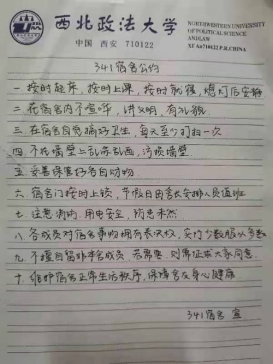 西北政法大学
中国 西安 710122
NORTHWESTERN UNIVERSITY
OF POLITICAL SCIENCE
AND LAW
XI'AN 710122 P.R.CHINA
341宿舍公约
一 按时起床,按时上课,按时就寝,熄灯后安静
二 在宿舍内不喧哗,讲文明,有礼貌
三 在宿舍自觉搞好卫生,每天至少打扫一次
四 不在墙壁上乱涂乱画,污损墙壁
五 妥善保管好各自财物
六 宿舍门按时上锁,节假日由舍长安排人员值班
七 注意消防,用电安全,防患未然
八 各成员对宿舍事物拥有表决权,实行少数服从多数
九 不擅自留宿非本舍成员,若需要,则需征求大家同意
十 维护宿舍正常生活秩序,保障舍友身心健康
341宿舍 宣